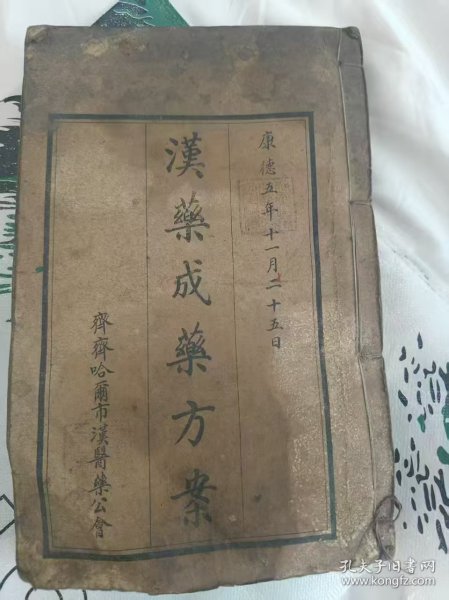 康德五年十一月二十五日
漢藥成藥方案
齊齊哈爾市漢醫藥公會
孔夫子旧书网
www.kongfz.com